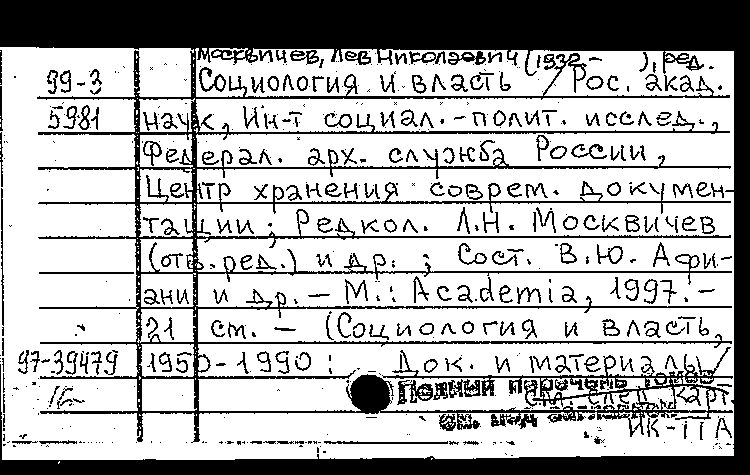 Москвичев, Лев Николаевич (1932- ), ред.
99-3 Социология и власть / Рос. акад.
5981 наук, Ин-т социал.-полит. исслед.,
Федерал. арх. служба России,
Центр хранения соврем. докумен-
тации; Редкол. Л.Н. Москвичев
(отв. ред.) и др. ; Сост. В.Ю. Афи-
ани и др. – М.: Academia, 1997. –
21 см. – (Социология и власть,
97-39479 1950-1990 : Док. и материалы /
16- Полный перечень томов
см. след. карт.
см. под заглавием
ИК-ТГА